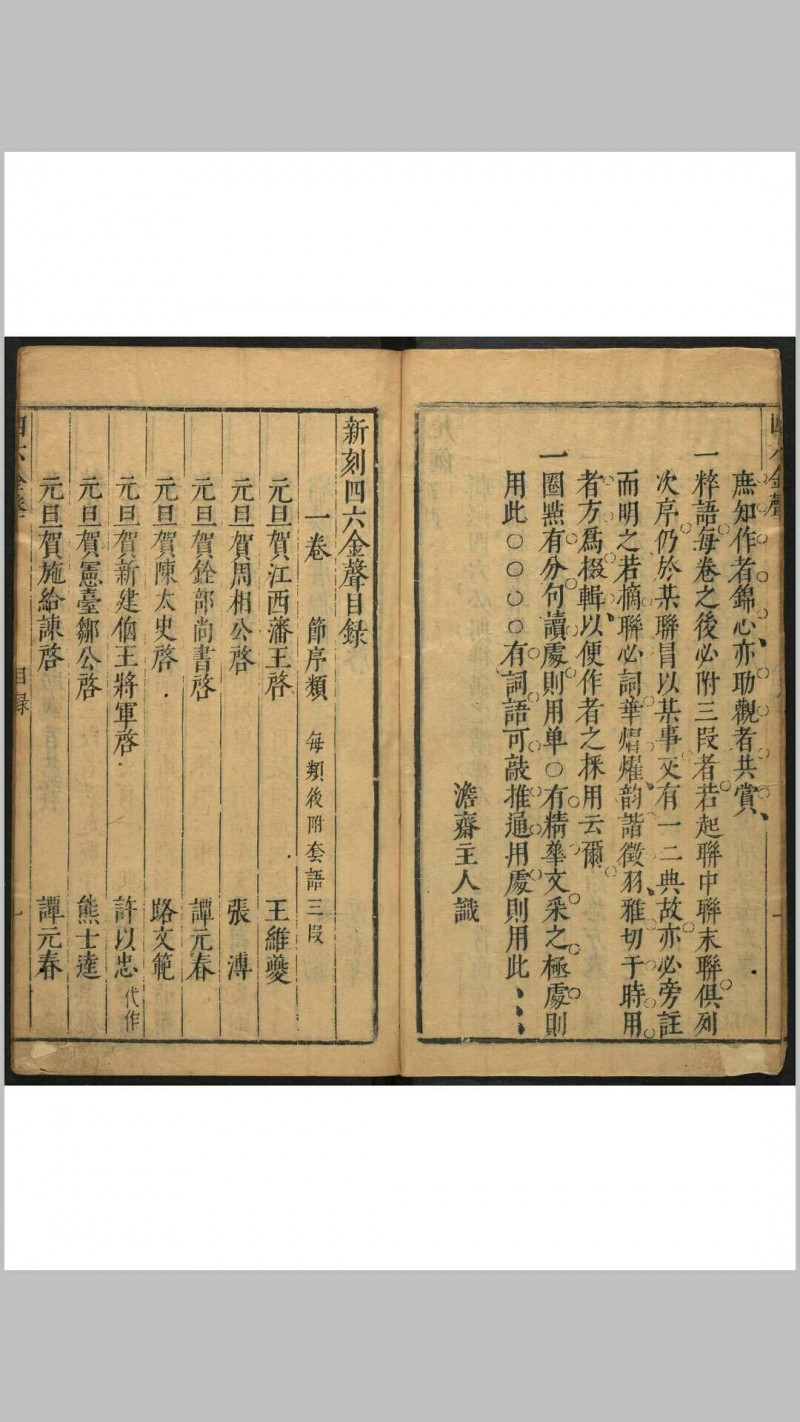 庶知作者錦心亦助觀者共賞
一粹語每卷之後必附三段者若起聯中聯末聯俱列
次序仍於某聯冒以某事文有一二典故亦必旁註
而明之若摘聯必詞華熠燿韵諧徵羽雅切于時用
者方爲棳輯以便作者之採用云爾
一圈㸃有分句讀處則用单○有精華文采之極處則
用此○○○○有詞語可敲推通用處則用此、、、
澹齋主人識
新刻四六金聲目録
一卷 節序類 每類後附套語三段
元旦賀江西藩王啓 王維夔
元旦賀周相公啓 張溥
元旦賀銓部尚書啓 譚元春
元旦賀陳太史啓 路文範
元旦賀新建伯王將軍啓 許以忠代作
元旦賀憲臺鄒公啓 熊士逵
元旦賀施給諫啓 譚元春
四六金聲 目録 一